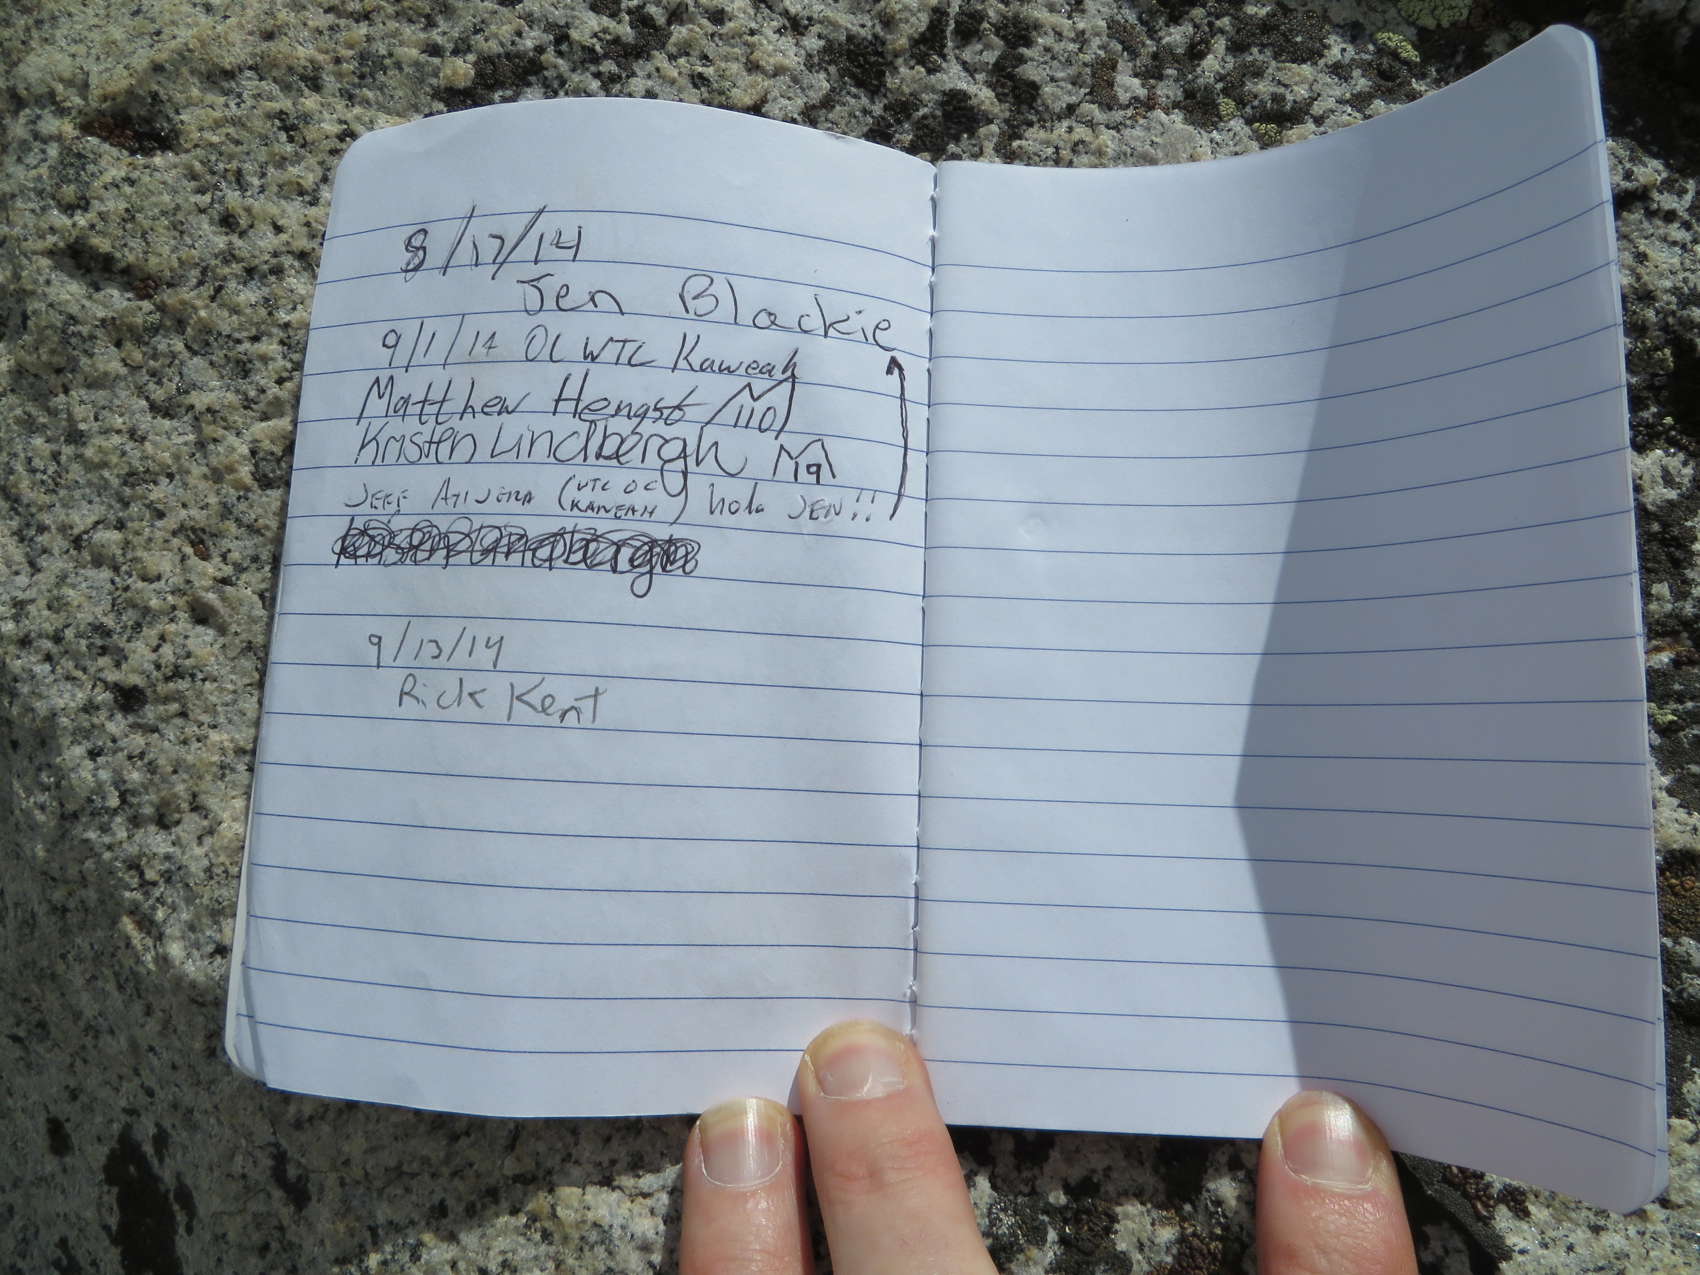 8/17/14
Jen Blackie
9/1/14 OC WTC Kaweah
Matthew Hengst 110
Kristen Lindbergh 19
JEFF (WTC OC KAWEAH) hola JEN!!
9/13/14
Rick Kent